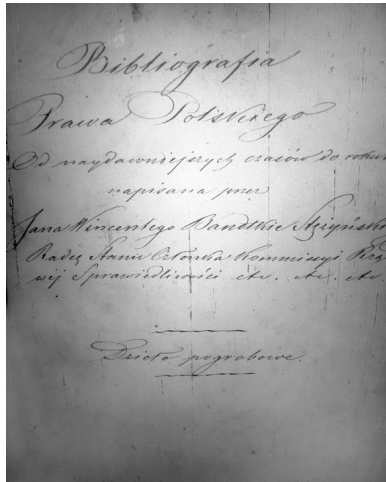 Bibliografia
Prawa Polskiego
Od naydawniejszych czasów do roku
napisana przez
Jana Wincentego Bandtkie Stężyński
Radcę Stanu Członka Kommissyi Rzą
wéj Sprawiedliwości etc. etc. etc
Dzieło pogrobowe.